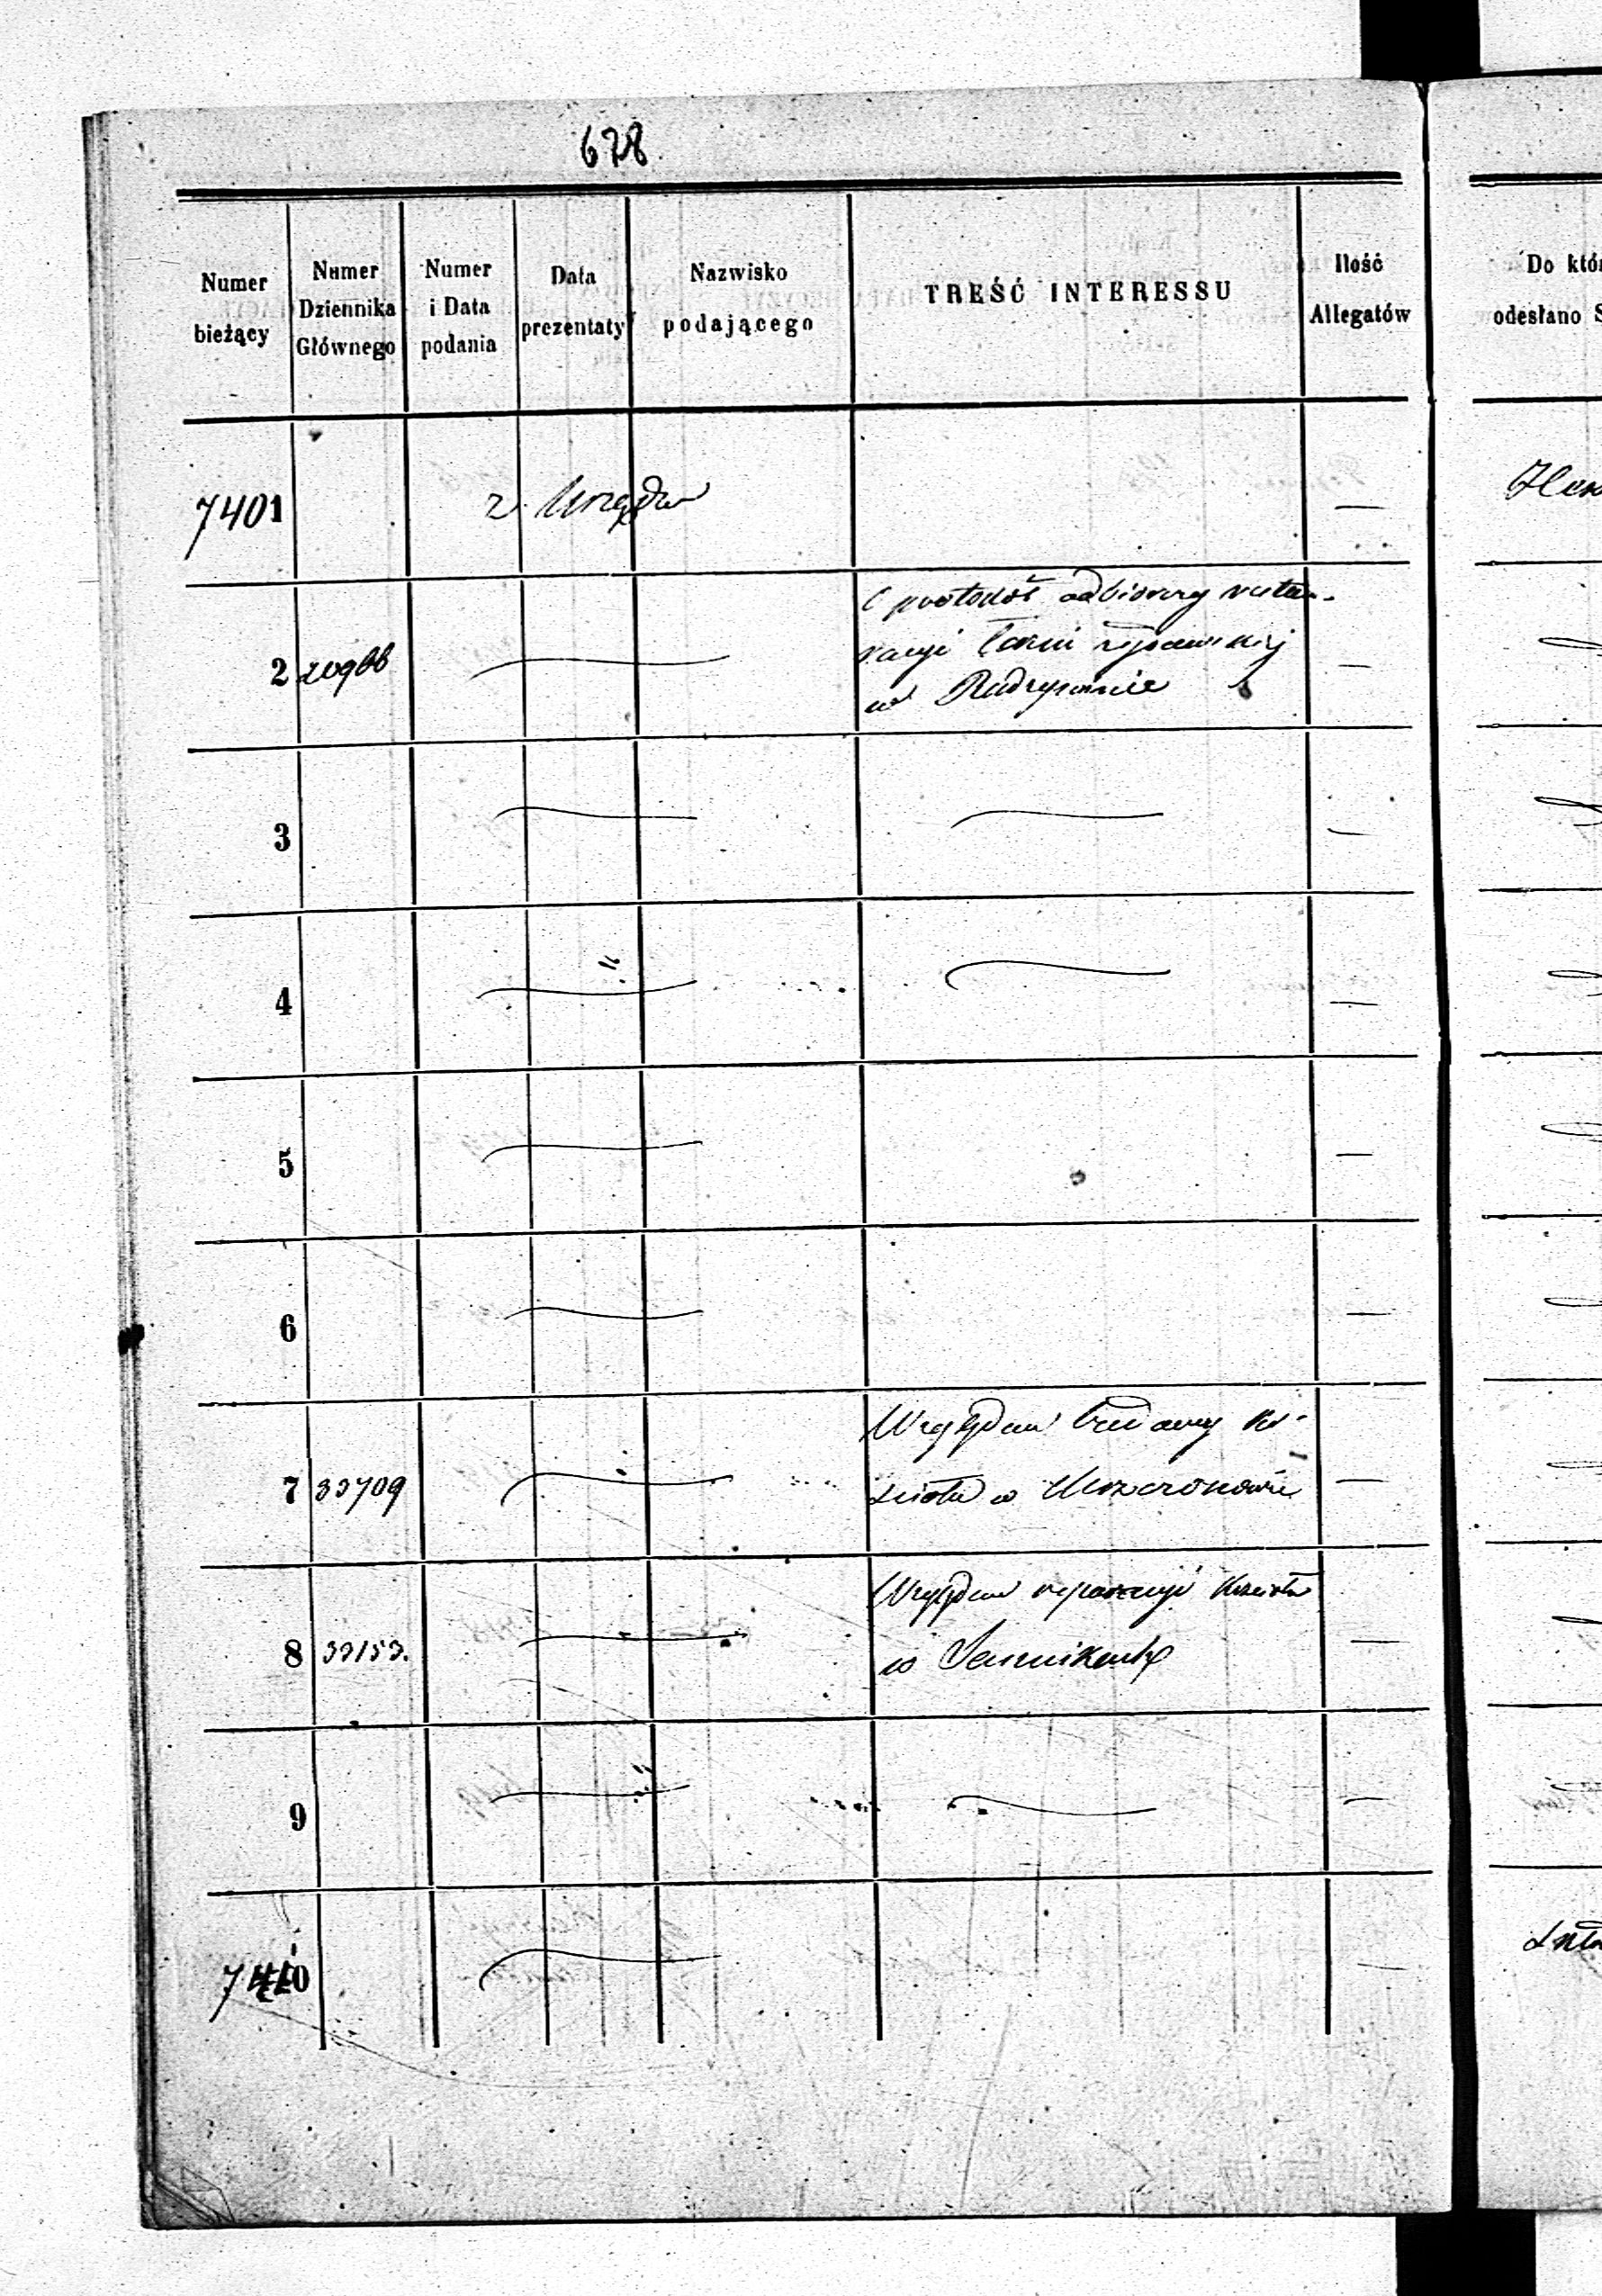 678.
Numer
bieżący
Numer
Dziennika
Głównego
Numer
i Data
podania
Data
prezentaty
Nazwisko
podającego
TREŚĆ INTERESSU
Ilość
Allegatów
Do któr
odesłano S
7401
z Urzędu
—
2
20966
o protokół odbiorczy restau-
racyi
—
w Radzyminie
3
—
4
—
5
—
6
—
7
33709
Względem budowy ko-
ścioła w Mszczonowie
—
8
33153.
Względem reparacyi kościoła
w Sannikach
—
9
—
7410
—